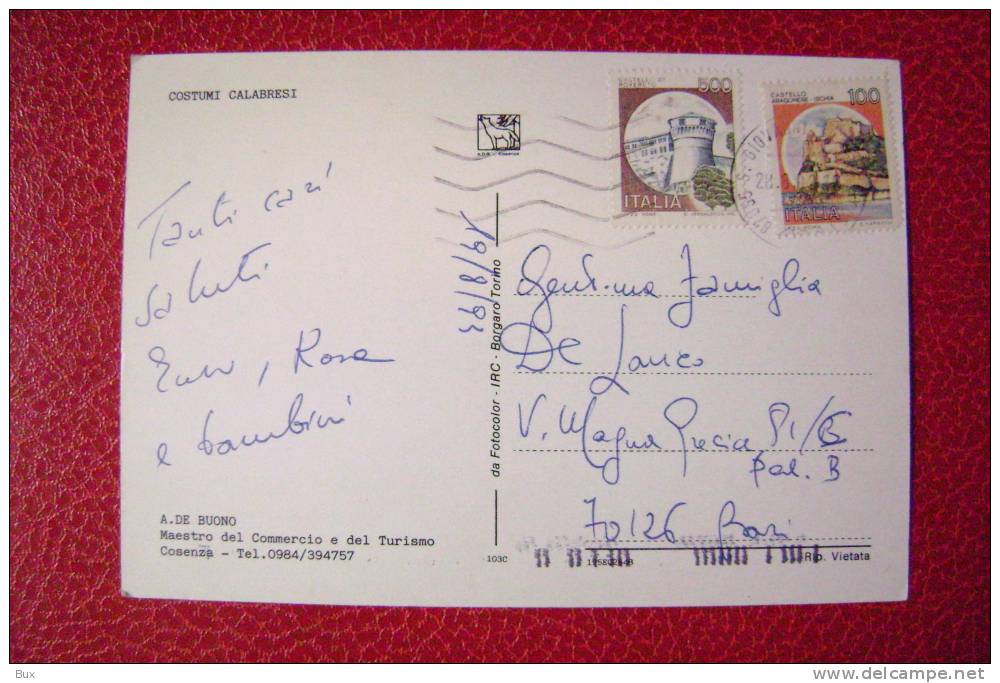 COSTUMI CALABRESI
Tanti cari
saluti
Enzo, Rosa
e bambini
A.DE BUONO
Maestro del Commercio e del Turismo
Cosenza - Tel.0984/394757
103C
da Fotocolor - IRC - Borgaro Torino
19/8/93
CASTELLO DI
ROVERETO
500
ITALIA
CASTELLO
ARAGONESE - ISCHIA
100
ITALIA
Gent.ma Famiglia
De
V. Magna Grecia
pal. B
70126 Bari
Rip. Vietata
Bux
delcampe.net